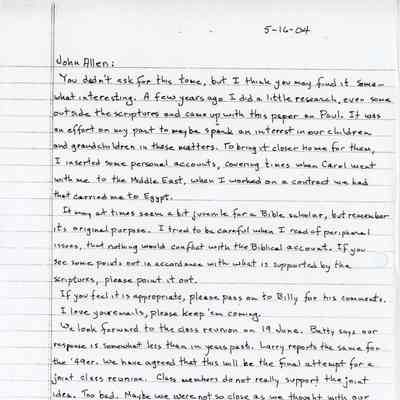 5-16-04
John Allen:
You didn't ask for this tome, but I think you may find it some-
what interesting. A few years ago I did a little research, even some
outside the scriptures and came up with this paper on Paul. It was
an effort on my part to maybe spark an interest in our children
and grandchildren in these matters. To bring it closer home for them,
I inserted some personal accounts, covering times when Carol went
with me to the Middle East, when I worked on a contract we had
that carried me to Egypt.
It may at times seem a bit juvenile for a Bible scholar, but remember
its original purpose. I tried to be careful when I read of peripheral
issues, that nothing would conflict with the Biblical account. If you
see some points not in accordance with what is supported by the
scriptures, please point it out.
If you feel it is appropriate, please pass on to Billy for his comments.
I love your emails, please keep 'em coming.
We look forward to the class reunion on 19 June. Betty says our
response is somewhat less than in years past. Larry reports the same for
the '49er. We have agreed that this will be the final attempt for a
joint class reunion. Class members do not really support the joint
idea. Too bad. Maybe we were not so close as we thought with our